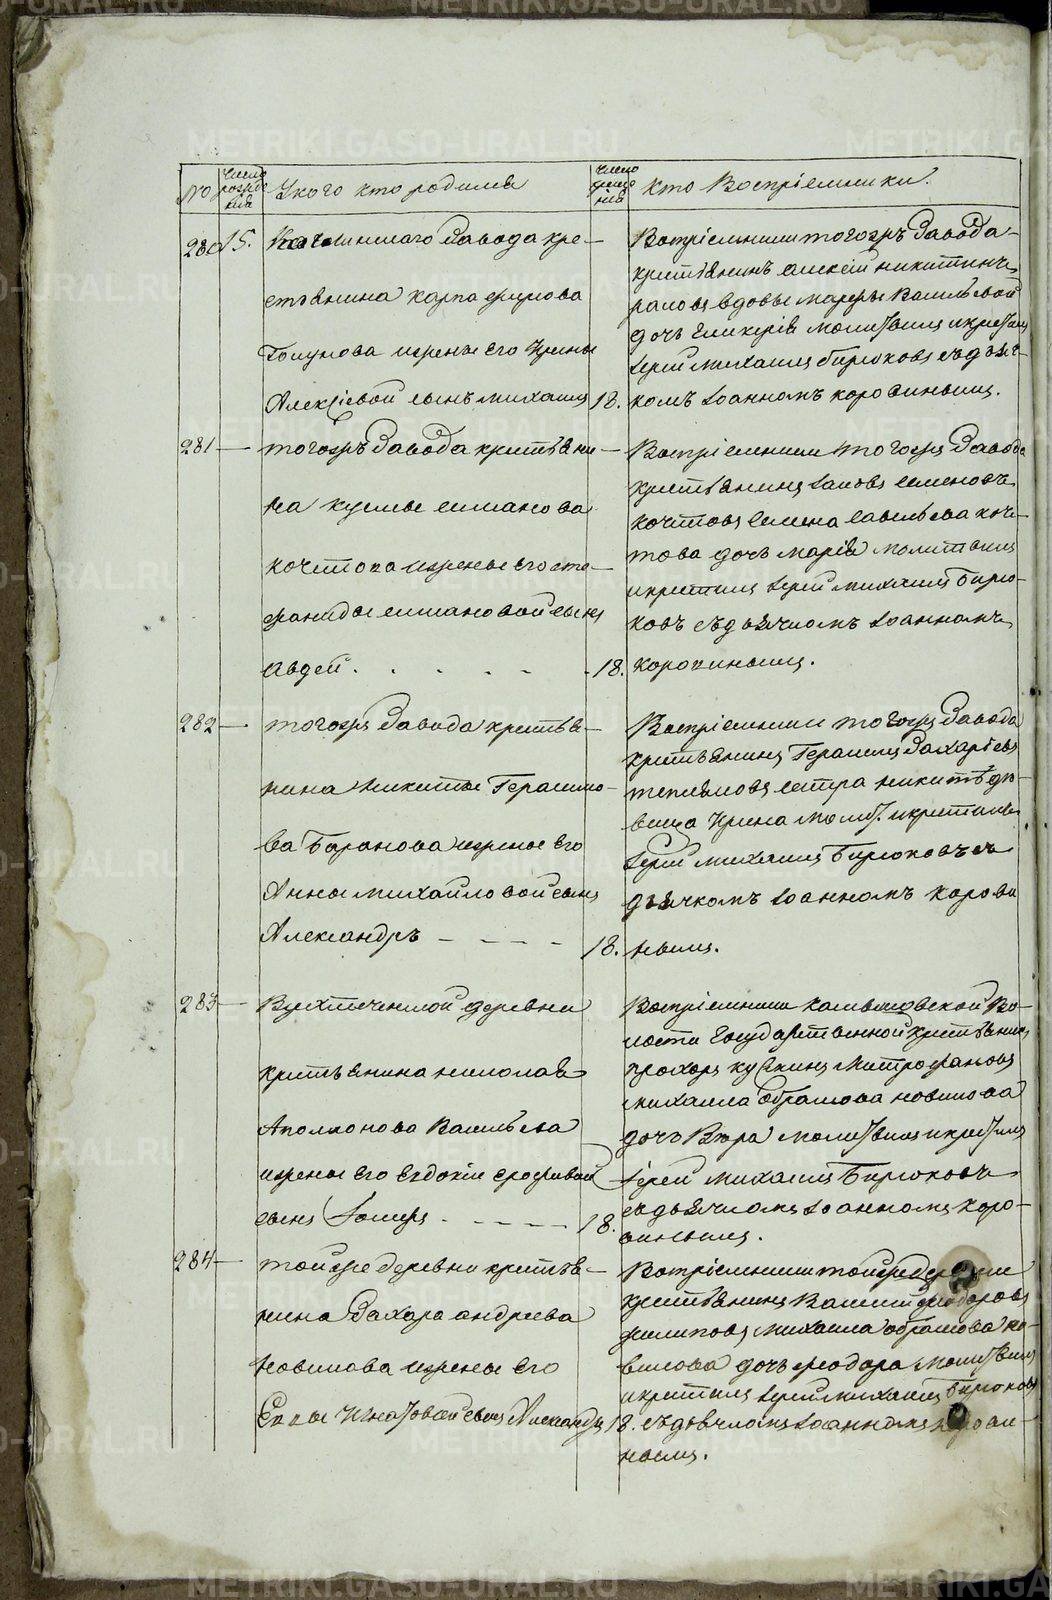 №
Число рожде нія
У кого кто родился
Число креще нія
Кто Воспріемники.
280 15.
завода кре–
стьянина Карпа
Голунова и жены его Ирины
Алексіевой сынъ Михаилъ 18.
Воспріемники тогожъ завода
крестьянинъ Алексѣй Никитинъ
вдовы Марфы Васильевой
дочь Гликерія молитвилъ и крестилъ
Іерей Михаилъ Бирюковъ съ дьяч–
комъ Іоанномъ Коровинымъ.
281 –
тогожъ завода крестьяни–
на Кузмы
и жены его Сте–
фаниды сынъ
Авдей. . . – – – 18.
Воспріемники тогожъ завода
крестьянинъ Семеновъ
Семена Савельева
дочь Марія молитвилъ
и крестилъ Іерей Михаилъ Бирю–
ковъ съ дьячкомъ Іоанномъ
Коровинымъ.
282 –
тогожъ завода крестья–
нина Никиты Герасимо–
ва Баранова и жены его
Анны Михайловой сынъ
Александръ – – – – 18.
Воспріемники тогожъ завода
крестьянинъ Герасимъ Захаріевъ
сестра Никиты дѣ–
вица Ирина молит. и крестилъ
Іерей Михаилъ Бирюковъ съ
дьячкомъ Іоанномъ Корови
нымъ.
283 –
деревни
крестьянина Николая
Аполлонова Васильева
и жены его Евдокіи Ерофѣевой
сынъ – – – – – 18.
Воспріемники Во–
лости Государственной крестьянинъ
Прохоръ Митрофановъ
Михаила Абрамова Новикова
дочь Вѣра молитвилъ и крестилъ
Іерей Михаилъ Бирюковъ
съ дьячкомъ Іоанномъ Коро–
винымъ.
284 –
той же деревни крестья–
нина Захара Андреева
Новикова и жены его
Елены Игнатовой сынъ Александръ 18.
Воспріемники той же деревни
крестьянинъ Василій Федоровъ
Филиповъ Михаила Абрамова Но–
викова дочь Феодора молитвилъ
и крестилъ Іерей Михаилъ Бирюковъ
съ дьячкомъ Іоанномъ Корови–
нымъ.